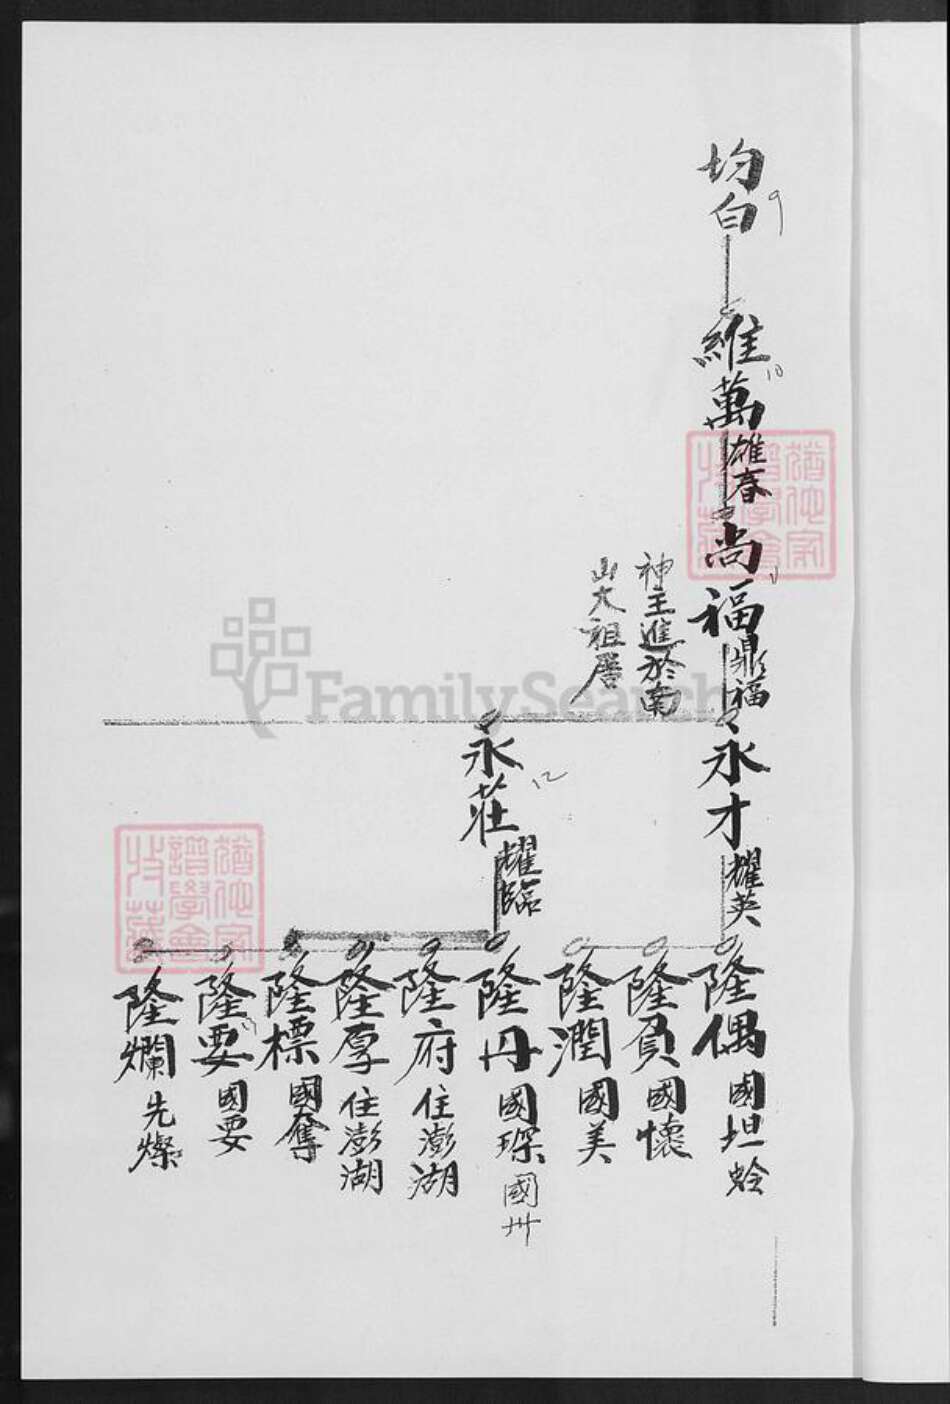 均白
9
維萬
10
雄春
尚福
鼎福
神主進於南
山大祖厝
永才
耀英
永荘
12
耀臨
隆偶
國坦
隆員
國懷
隆潤
國美
隆丹
國琛
國卅
隆府
住澎湖
隆厚
住澎湖
隆標
國奪
隆要
國要
隆爛
先燦
FamilySearch